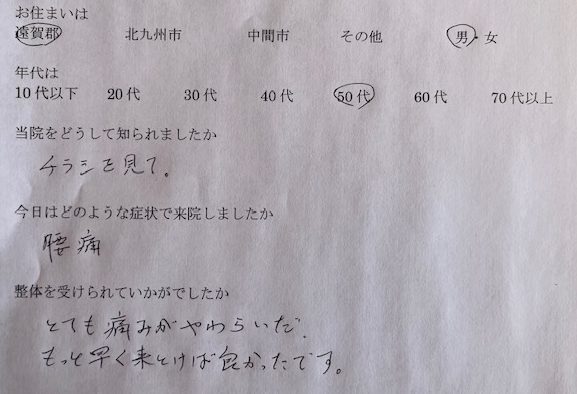 お住まいは
遠賀郡 北九州市 中間市 その他 男・女
年代は
10代以下 20代 30代 40代 50代 60代 70代以上
当院をどうして知られましたか
チラシを見て。
今日はどのような症状で来院しましたか
腰痛
整体を受けられていかがでしたか
とても痛みがやわらいだ.
もっと早く来とけば良かったです。